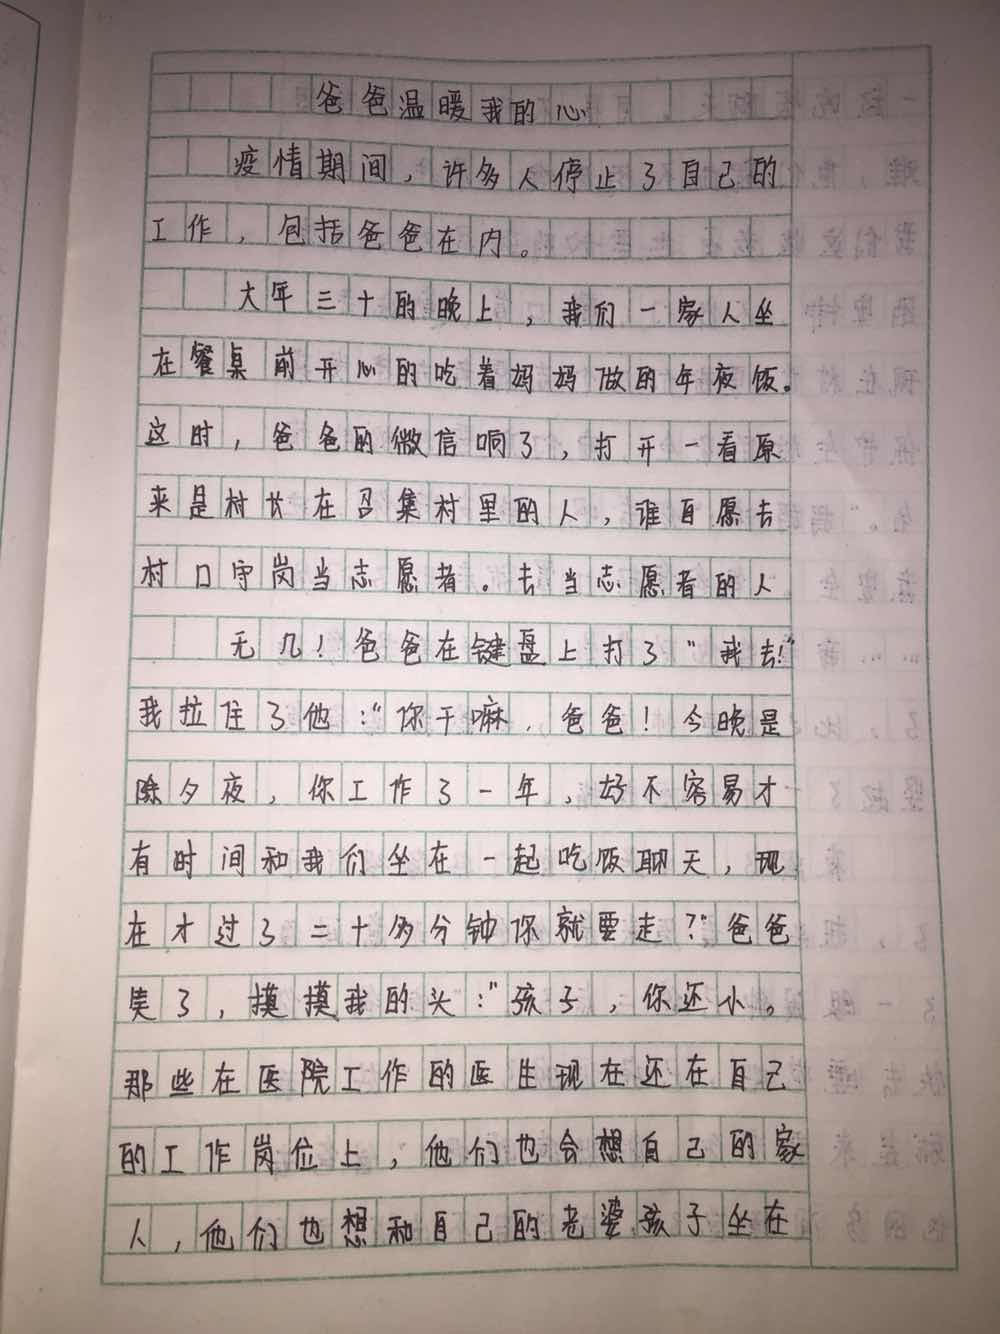 爸爸温暖我的心
疫情期间，许多人停止了自己的
工作，包括爸爸在内。
大年三十的晚上，我们一家人坐
在餐桌前开心的吃着妈妈做的年夜饭。
这时，爸爸的微信响了，打开一看原
来是村长在召集村里的人，谁自愿去
村口守岗当志愿者。去当志愿者的人
无几！爸爸在键盘上打了“我去！”
我拉住了他：“你干嘛，爸爸！今晚是
除夕夜，你工作了一年，好不容易才
有时间和我们坐在一起吃饭聊天，现
在才过了二十多分钟你就要走？”爸爸
笑了，摸摸我的头：“孩子，你还小。
那些在医院工作的医生现在还在自己
的工作岗位上，他们也会想自己的家
人，他们也想和自己的老婆孩子坐在